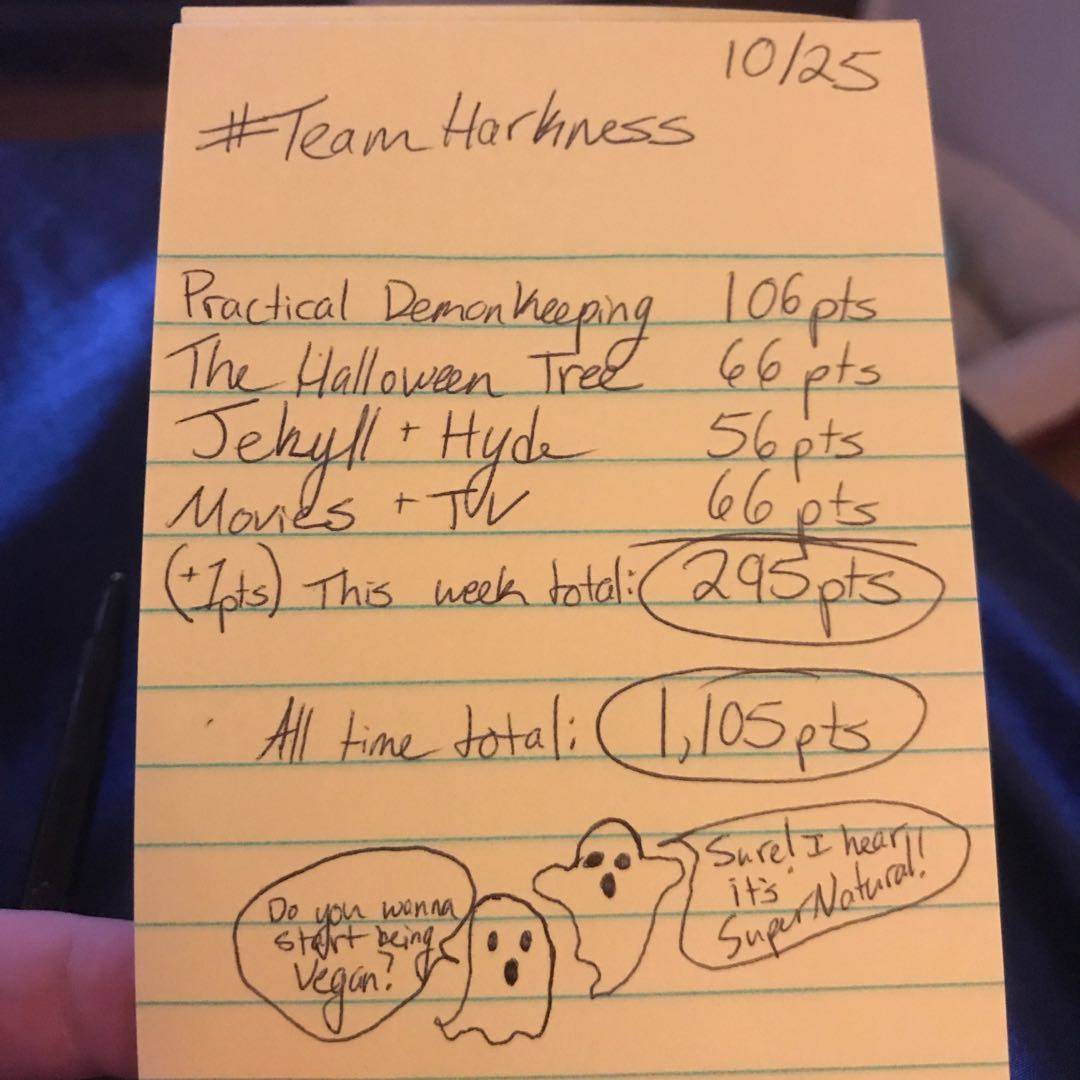 10/25
#Team Harkness
Practical Demonkeeping 106 pts
The Halloween Tree 66 pts
Jekyll + Hyde 56 pts
Movies + TV 66 pts
(+1pts) This week total: 295 pts
All time total: 1,105 pts
Do you wanna
start being
Vegan?
Sure! I hear
it's
SuperNatural!!